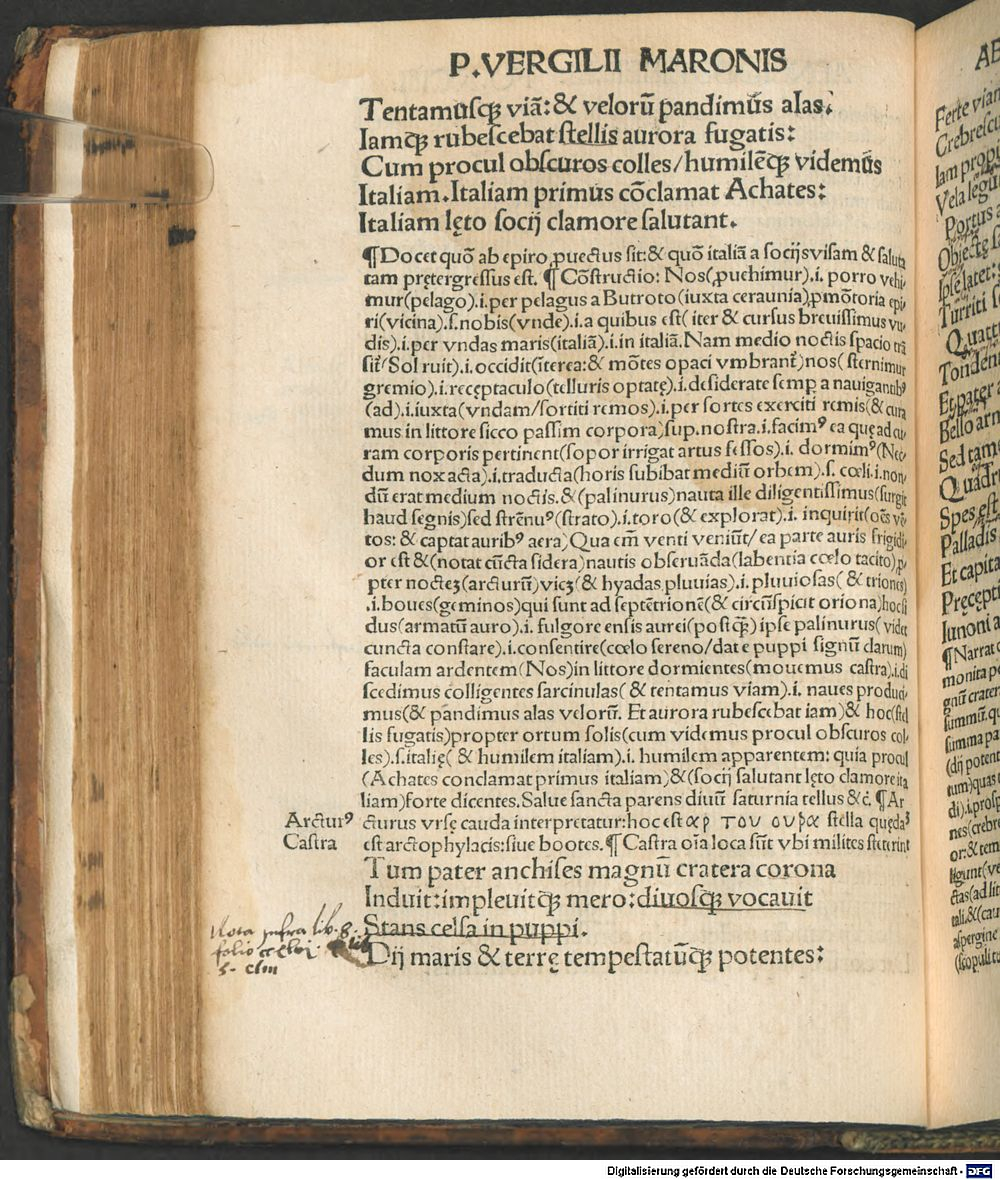 P.VERGILII MARONIS
Tentamusqꝫ viã: & velorũ pandimus alas.
Iamqꝫ rubescebat stellis aurora fugatis:
Cum procul obscuros colles/humilẽqꝫ videmus
Italiam.Italiam primus cõclamat Achates:
Italiam lęto socij clamore salutant.
¶Docet quõ ab epiro ꝓuectus sit:& quõ italiã a socijs visam & saluta
tam prętergressus est. ¶ Cõstructio: Nos(ꝓuehimur).i. porro vehi
mur(pelago).i.per pelagus a Butroto(iuxta ceraunia).ꝓmõtoria epi
ri(vicina).s.nobis(vnde).i.a quibus est( iter & cursus breuissimus vn
dis).i.per vndas maris(italiã).i.in italiã.Nam medio noctis spacio trã
sit̃(Sol ruit).i.occidit(ĩterea:& mõtes opaci vmbrant̃)nos( sternimur
gremio).i.receptaculo(telluris optatę).i.desiderate semp a nauigantibꝰ
(ad).i.iuxta(vndam/sortiti remos).i.per sortes exerciti remis(& cura
mus in littore sicco passim corpora)sup.nostra.i.facimꝰ ea quę ad cu
ram corporis pertinent(sopor irrigat artus fessos).i. dormimꝰ(Nec
dum nox acta).i.traducta(horis subibat mediũ orbem).s. cœli.i.non
dũ erat medium noctis.&(palinurus)nauta ille diligentissimus(surgit
haud segnis)sed strẽnuꝰ(strato).i.toro(& explorat).i. inquirit(oẽs vẽ
tos: & captat auribꝰ aera)Qua em̃ venti veniũt/ ea parte auris frigidi
or est &(notat cũcta sidera)nautis obseruãda(labentia cœlo tacito)ꝓ
pter noctez(arcturũ)vicz(& hyadas pluuias).i. pluuiosas( & triones)
.i.boues(geminos)qui sunt ad septẽtrionẽ(& circũspicit oriona)hoc si
dus(armatũ auro).i. fulgore ensis aurei(postqꝫ̃)ipse palinurus( videt
cuncta constare).i.consentire(cœlo sereno/dat e puppi signũ clarum)
faculam ardentem(Nos)in littore dormientes(mouemus castra).i.di
scedimus colligentes sarcinulas( & tentamus viam).i. naues produci
mus(& pandimus alas velorũ. Et aurora rubescebat iam)& hoc(stel
lis fugatis)propter ortum solis(cum videmus procul obscuros col
les).s.italię( & humilem italiam).i. humilem apparentem: quia procul
(Achates conclamat primus italiam)&(socij salutant lęto clamore ita
liam)forte dicentes.Salue sancta parens diuũ saturnia tellus &c̃. ¶Ar
Arcturꝰ cturus vrsę cauda interpretatur:hoc est αρ του ουρα stella quędaꝫ
Castra est arctophylacis:siue bootes. ¶ Castra oĩa loca sũt vbi milites steterint
Tum pater anchises magnũ cratera corona
Induit:impleuitqꝫ mero:diuosqꝫ vocauit
Stans celsa in puppi.
Nota supra lib. 8.
folio
Dij maris & terrę tempestatũqꝫ potentes:
AE
Ferte vian
Crebrescu
Iam propi
Vela legũ
Portus a
Obiectę s
Ipse latet:
Turriti s
Quatt
Tondent
Et pater
Bello arm
Sed tame
Quadru
Spes est
Palladis
Et capita
Pręcepti
Iunoni a
¶Narrat
monita pe
gnũ crater
summũ.qu
summa pa
(dij potent
tum)quas t
di).i.prosp
nes(crebre
or:& tem
legunt(ve
ctas(ad lit
tali.&(cau
aspergine
(scopuli tu
Digitalisierung gefördert durch die Deutsche Forschungsgemeinschaft - DFG